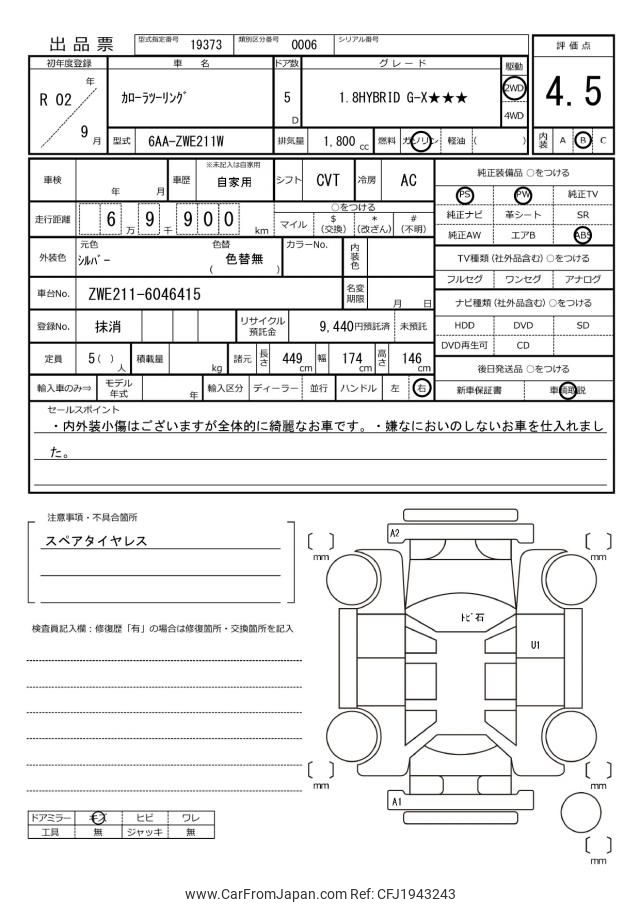 出品票
型式指定番号 19373 類別区分番号 0006 シリアル番号
評価点
初年度登録 車名 ドア数 グレード 駆動
R 02 年 9 月
カローラツーリング
5 D
1.8HYBRID G-X★★★
2WD
4WD
4.5
型式 6AA-ZWE211W 排気量 1,800 cc 燃料 ガソリン 軽油 ( )
内装 A B C
車検 年 月 車歴 ※未記入は自家用 自家用 シフト CVT 冷房 AC
純正装備品 ○をつける
PS PW 純正TV
純正ナビ 革シート SR
純正AW エアB ABS
走行距離 6 万 9 千 9 0 0 km
○をつける
マイル $ (交換) * (改ざん) # (不明)
外装色 元色 シルバー 色替 ( 色替無 ) カラーNo. 内装色
TV種類 (社外品含む) ○をつける
フルセグ ワンセグ アナログ
車台No. ZWE211-6046415 名変期限 月 日
ナビ種類 (社外品含む) ○をつける
HDD DVD SD
DVD再生可 CD
登録No. 抹消 リサイクル預託金 9,440円預託済 未預託
定員 5( ) 人 積載量 kg 諸元 長さ 449 cm 幅 174 cm 高さ 146 cm
後日発送品 ○をつける
新車保証書 車輌取説
輸入車のみ⇒ モデル年式 年 輸入区分 ディーラー 並行 ハンドル 左 右
セールスポイント
・内外装小傷はございますが全体的に綺麗なお車です。・嫌なにおいのしないお車を仕入れまし
た。
注意事項・不具合箇所
スペアタイヤレス
検査員記入欄：修復歴「有」の場合は修復箇所・交換箇所を記入
ドアミラー キズ ヒビ ワレ
工具 無 ジャッキ 無
A2
mm
mm
トビ石
U1
mm
mm
A1
mm
www.CarFromJapan.com Ref: CFJ1943243